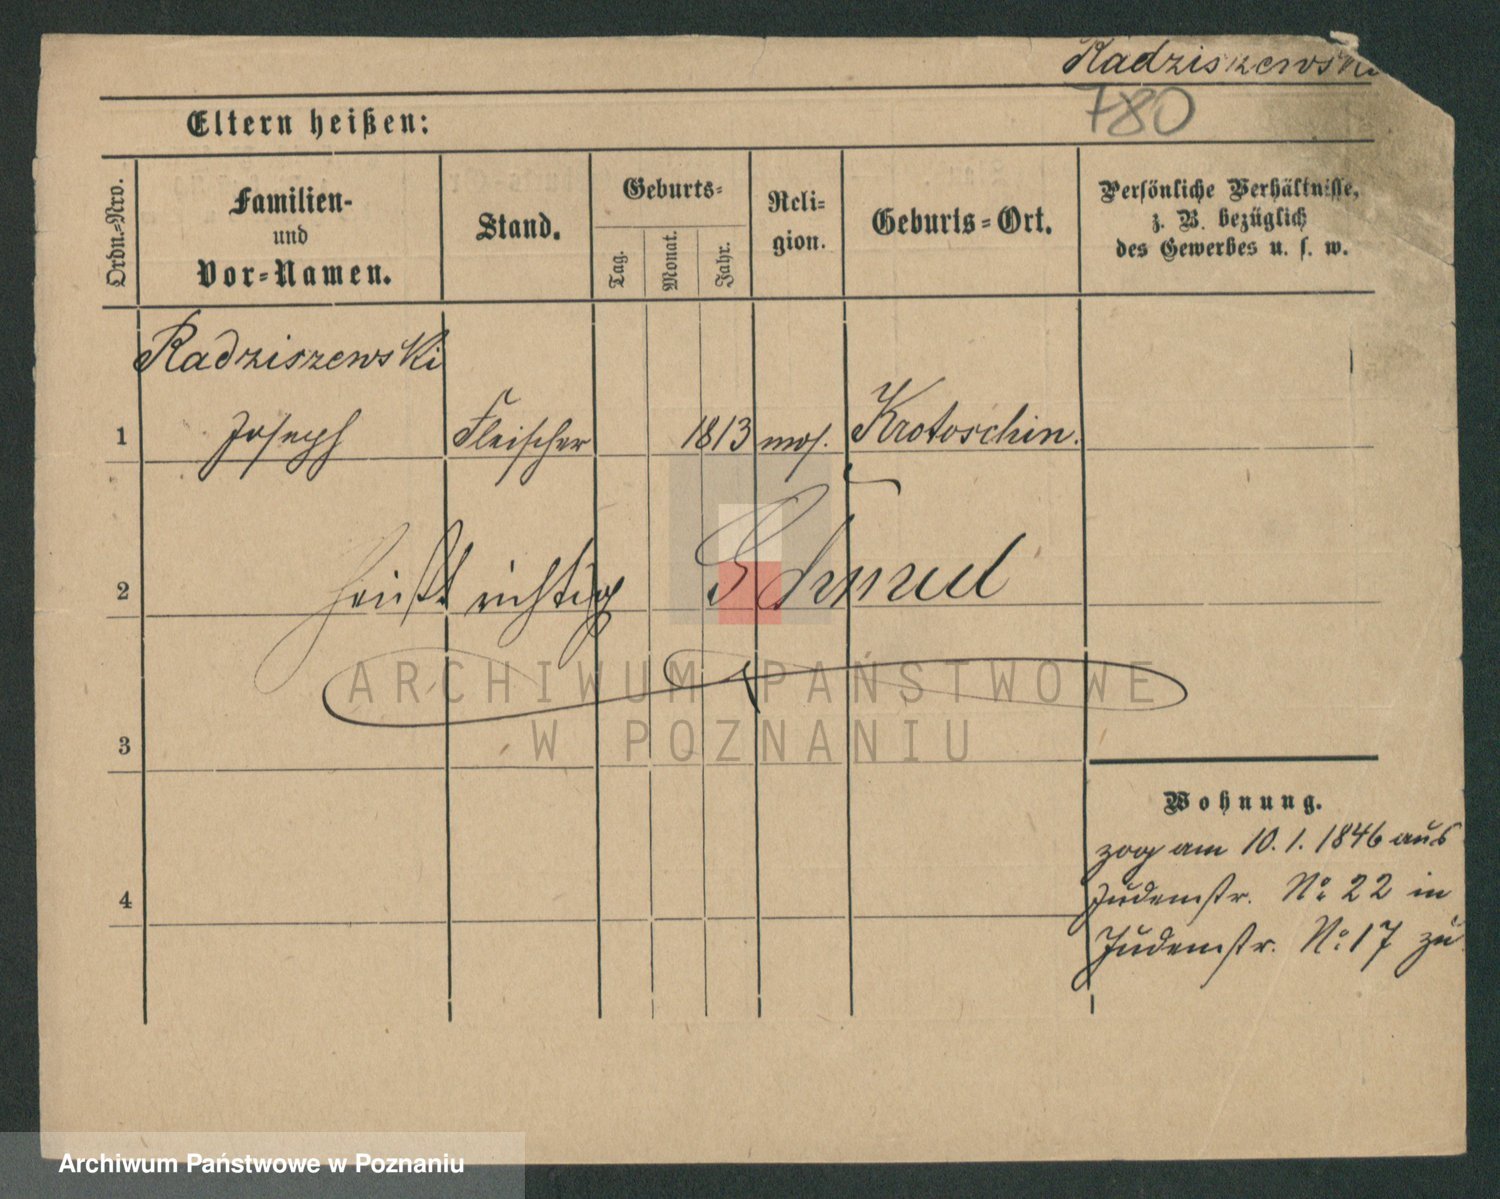 Radziszewski
780
Eltern heißen:
Ordn.-Nro.
Familien-
und
Vor-Namen.
Stand.
Geburts-
Tag.
Monat.
Jahr.
Reli-
gion.
Geburts-Ort.
Persönliche Verhältnisse,
z. B. bezüglich
des Gewerbes u. s. w.
Radziszewski
1 Joseph Fleischer 1813 mos. Krotoschin.
2 heißt richtig
3
4
Wohnung.
zog am 10. 1. 1846 aus
Judenstr. No 22 in
Judenstr. No 17 zu
ARCHIWUM PAŃSTWOWE
W POZNANIU
Archiwum Państwowe w Poznaniu